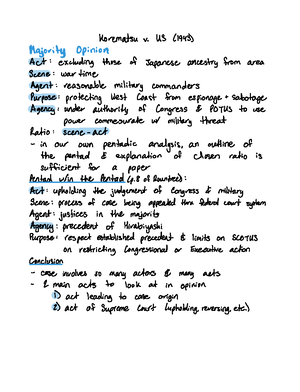 Korematsu v. US (1943)
Majority Opinion
Act: excluding those of Japanese ancestry from area
Scene: war time
Agent: reasonable military commanders
Purpose: protecting West Coast from espionage + sabotage
Agency: under authority of Congress & POTUS to use
power commensurate w/ military threat
Ratio: scene-act
- in our own pentadic analysis, an outline of
the pentad & explanation of chosen ratio is
sufficient for a paper
Pentad w/in the Pentad (4.8 of
Act: upholding the judgement of Congress & military
Scene: process of case being appealed thru federal court system
Agent: justices in the majority
Agency: precedent of Hirabayashi
Purpose: respect established precedent & limits on SCOTUS
on restricting Congressional or Executive action
Conclusion
- case involves so many actors & many acts
- 2 main acts to look at in opinion
1) act leading to case origin
2) act of Supreme Court (upholding, reversing, etc.)